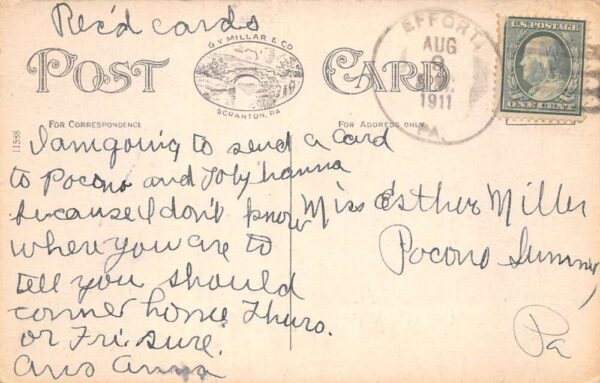 Rec'd cards
G V MILLAR & CO
SCRANTON, PA
POST CARD
EFFORT,
AUG
1911
PA.
U.S. POSTAGE
ONE CENT
FOR CORRESPONDENCE
FOR ADDRESS ONLY
11588
I am going to send a card
to Pocono and Toby'hanna
because I don't know
where you are to
tell you should
comer home Thurs.
or Fri. sure.
Ans Anna
Miss Esther Miller
Pocono Summit
Pa